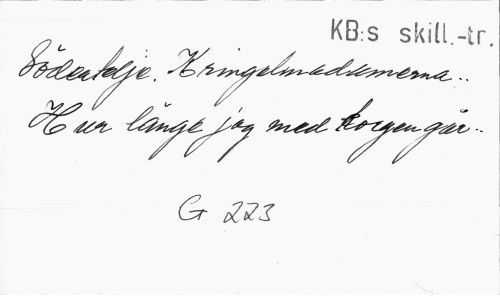 KB:s skill.-tr.
Södertelje. Kringelmadamerna..
Hur länge jag med korgen går..
G 223